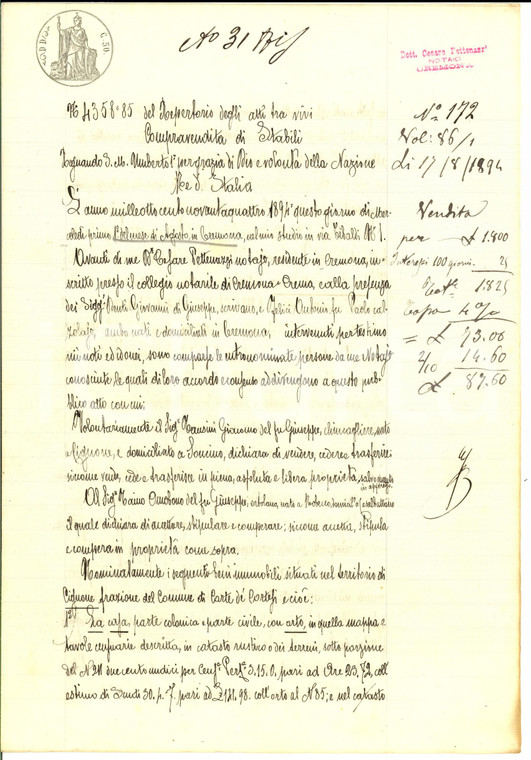 No 31 Bis
Dott. Cesare Pettenazzi
NOTAIO
CREMONA
N 4358-85 del Repertorio degli atti tra vivi
Compravendita di Stabili
Regnando S. M. Umberto I° per grazia di Dio e volontà della Nazione
Re d'Italia
L'anno milleottocentonovantaquattro 1894 questo giorno di Mer-
coledì primo 1° del mese di Agosto, in Cremona, nel mio studio in via N. 1.
Avanti di me Dr Cesare Pettenazzi notajo, residente in Cremona, in-
scritto presso il collegio notarile di Cremona-Crema, e alla presenza
dei Sigg.i Giovanni di Giuseppe, scrivano, e Felici Antonio fu Paolo cal-
zolajo, ambo nati e domiciliati in Cremona, intervenuti per testimo
nii noti ed idonei, sono comparse le infranominate persone da me Notajo
conosciute, le quali di loro accordo e consenso addivengono a questo pub-
blico atto con cui;
Volontariamente il Sig.r Giacomo del fu Giuseppe, nato
a Cignone, e domiciliato a Soncino, dichiara di vendere, cedere e trasferire
siccome vende, cede e trasferisce in piena, assoluta e libera proprietà, salvo
Al Sig.r del fu Giuseppe, ortolano, nato a
il quale dichiara di accettare, stipulare e comperare; siccome accetta, stipula
e compera in proprietà come sopra,
Nominatamente i seguenti beni immobili situati nel territorio di
Cignone frazione del Comune di Corte de' Cortesi e cioè:
1° La casa, parte colonica e parte civile, con orto, in quella mappa e
tavole censuarie descritta, in catasto rustico o dei terreni, sotto porzione
del N. 211 duecento undici per Cens.e Pert.e 3.15.0. pari ad Are 23.72, coll'
estimo di Scudi 30. 4. 7. pari ad £ 141.98. coll'orto al N 85; e nel catasto
No 172
Vol: 86/1
Li 17/8/1894
Vendita
per — £ 1.800
Interessi 100 giorni. 25
Tot.le 1825
Tassa 4%
= £ 73.00
2/10 14.60
£ 87.60